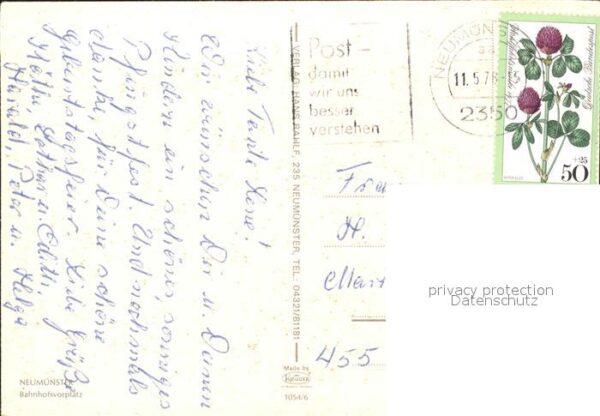 Liebe Tante Lene!
Wir wünschen Dir u. Deinen
Kindern ein schönes, sonniges
Pfingstfest. Und nochmals
danke, für Deine schöne
Geburtstagsfeier. Liebe Grüße
Käthe, Lothar u. Edith,
Harald, Peter u. Helga
NEUMÜNSTER
Bahnhofsvorplatz
VERLAG HANS RAHLF, 235 NEUMÜNSTER, TEL. 04321/81181
Made by
Krüger
1054/6
Post –
damit
wir uns
besser
verstehen
NEUMÜNSTER
11.5.78-15
2350
Deutsche Bundespost
50
+25
H.
455
privacy protection
Datenschutz